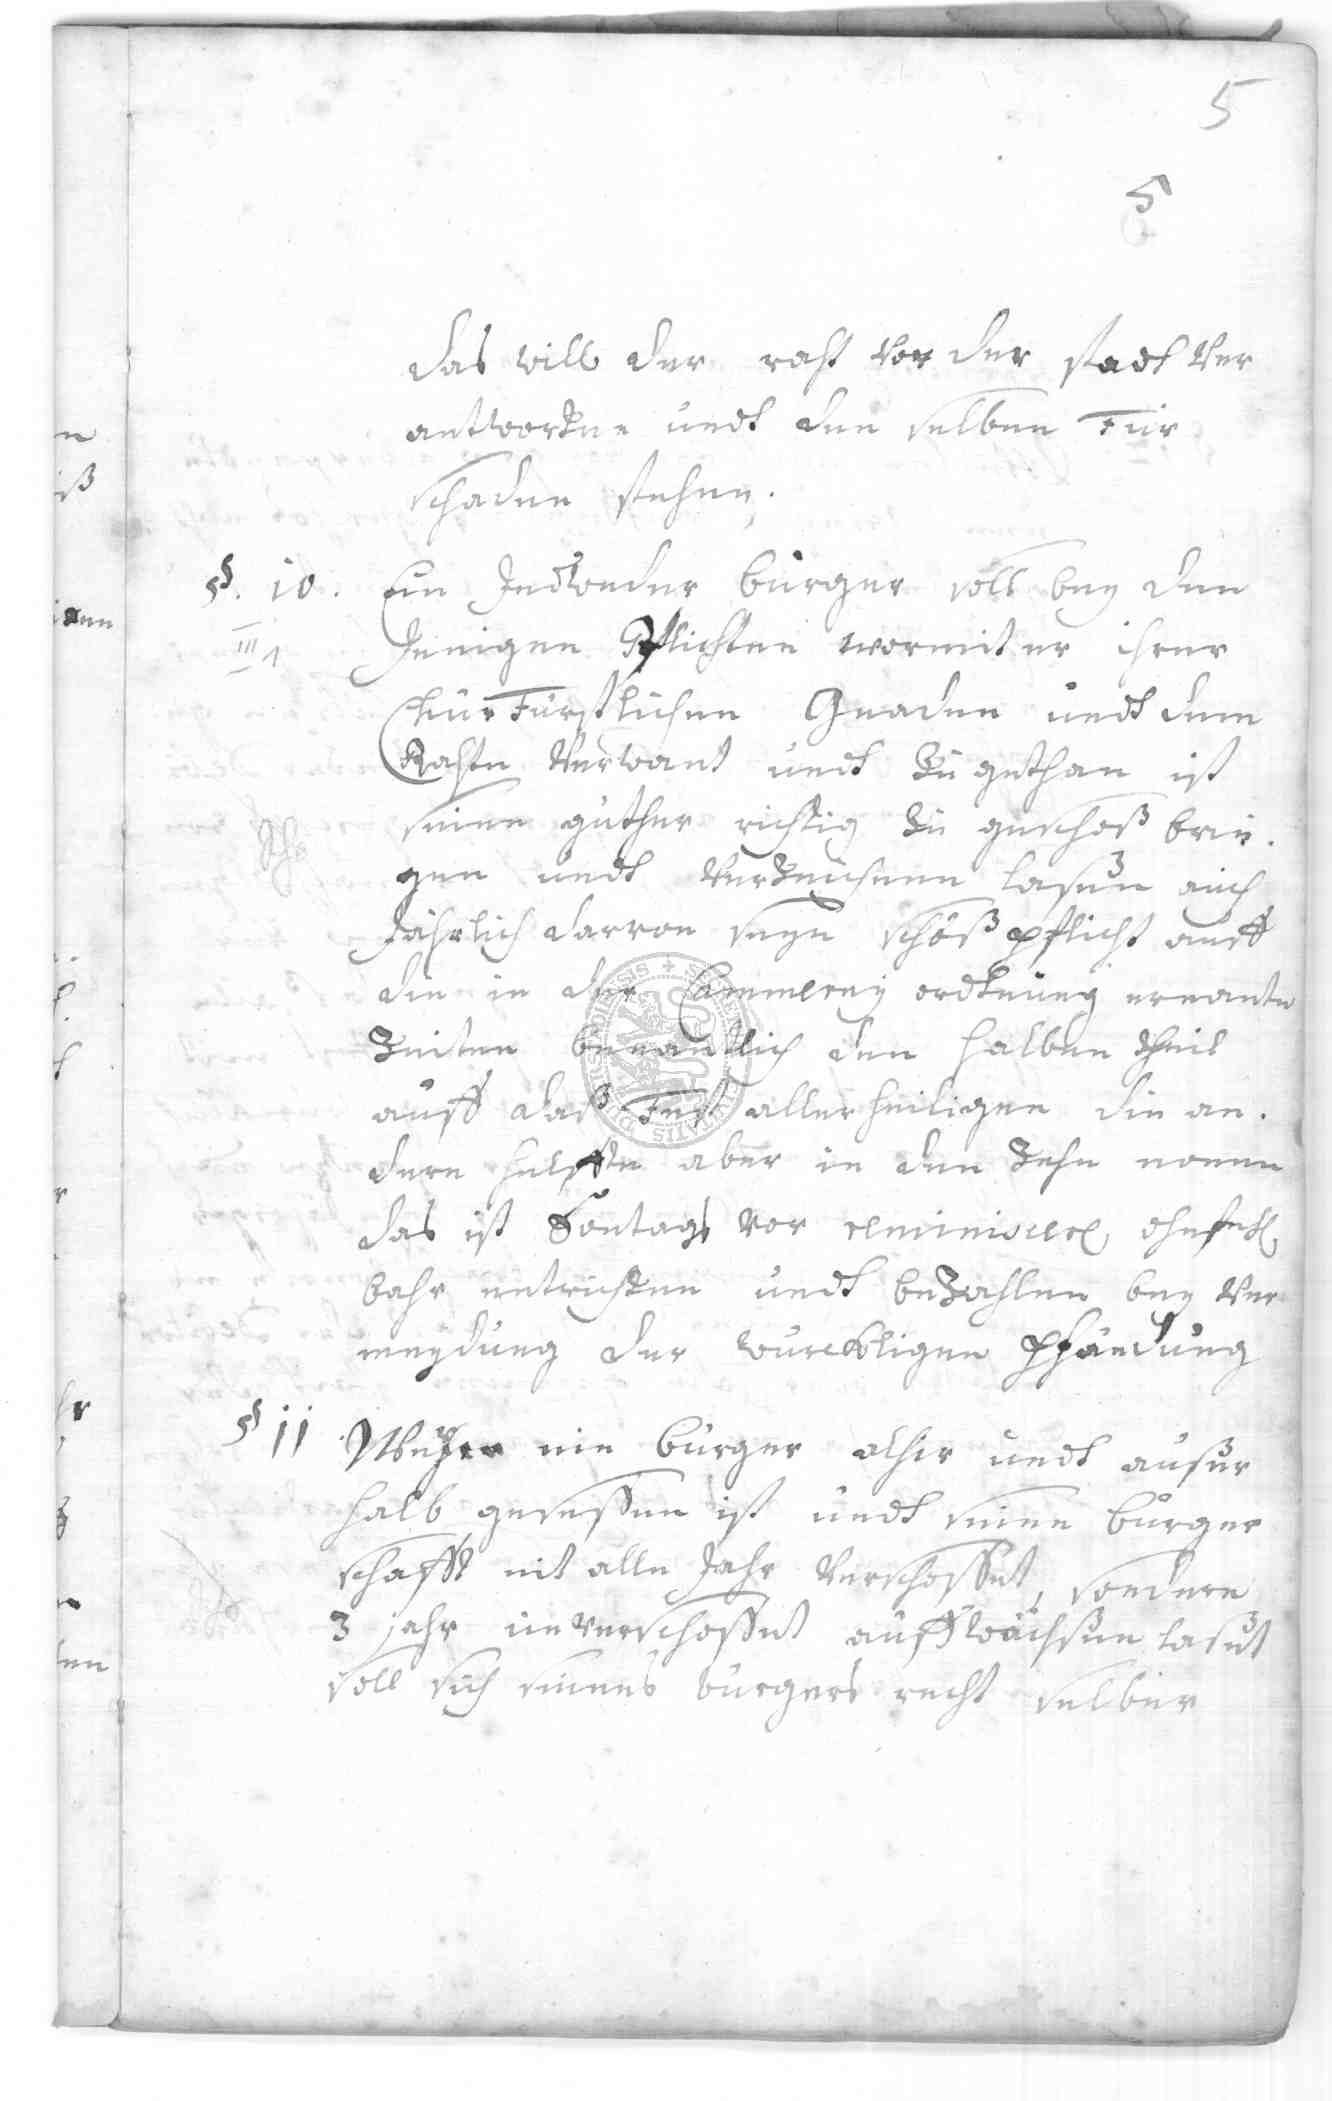 5
5
das will der raht vor der stadt ver
antworten undt den selben für
schaden stehen.
§. 10. Ein Jedweder bürger soll bey den
III 1 Jenigen Pflichten wormit er ihrer
Churfürstlichen Gnaden undt dem
Rahte verwant undt zu gethan ist
seine güther richtig zu geschoß brin.
gen undt verzeichnen lasen auch
Jährlich darvon seyn schoß pflicht auff
die in der Cammerey ordtnung ernante
Zeiten benantlich den halben theil
auff daß Fest aller heiligen die an.
dere helffte aber in den
das ist Sontags vor reminiscere ohnfehl
bahr entrichten undt beZahlen bey ver
meydung der würckligen Pfändung
§ 11 Welcher ein bürger alhir undt auser
halb gesessen ist undt seine bürger
schafft nit alle Jahr verschosset, sondern
3 jahr unverschosset auff wachsen laset
soll sich seines burgers recht selber